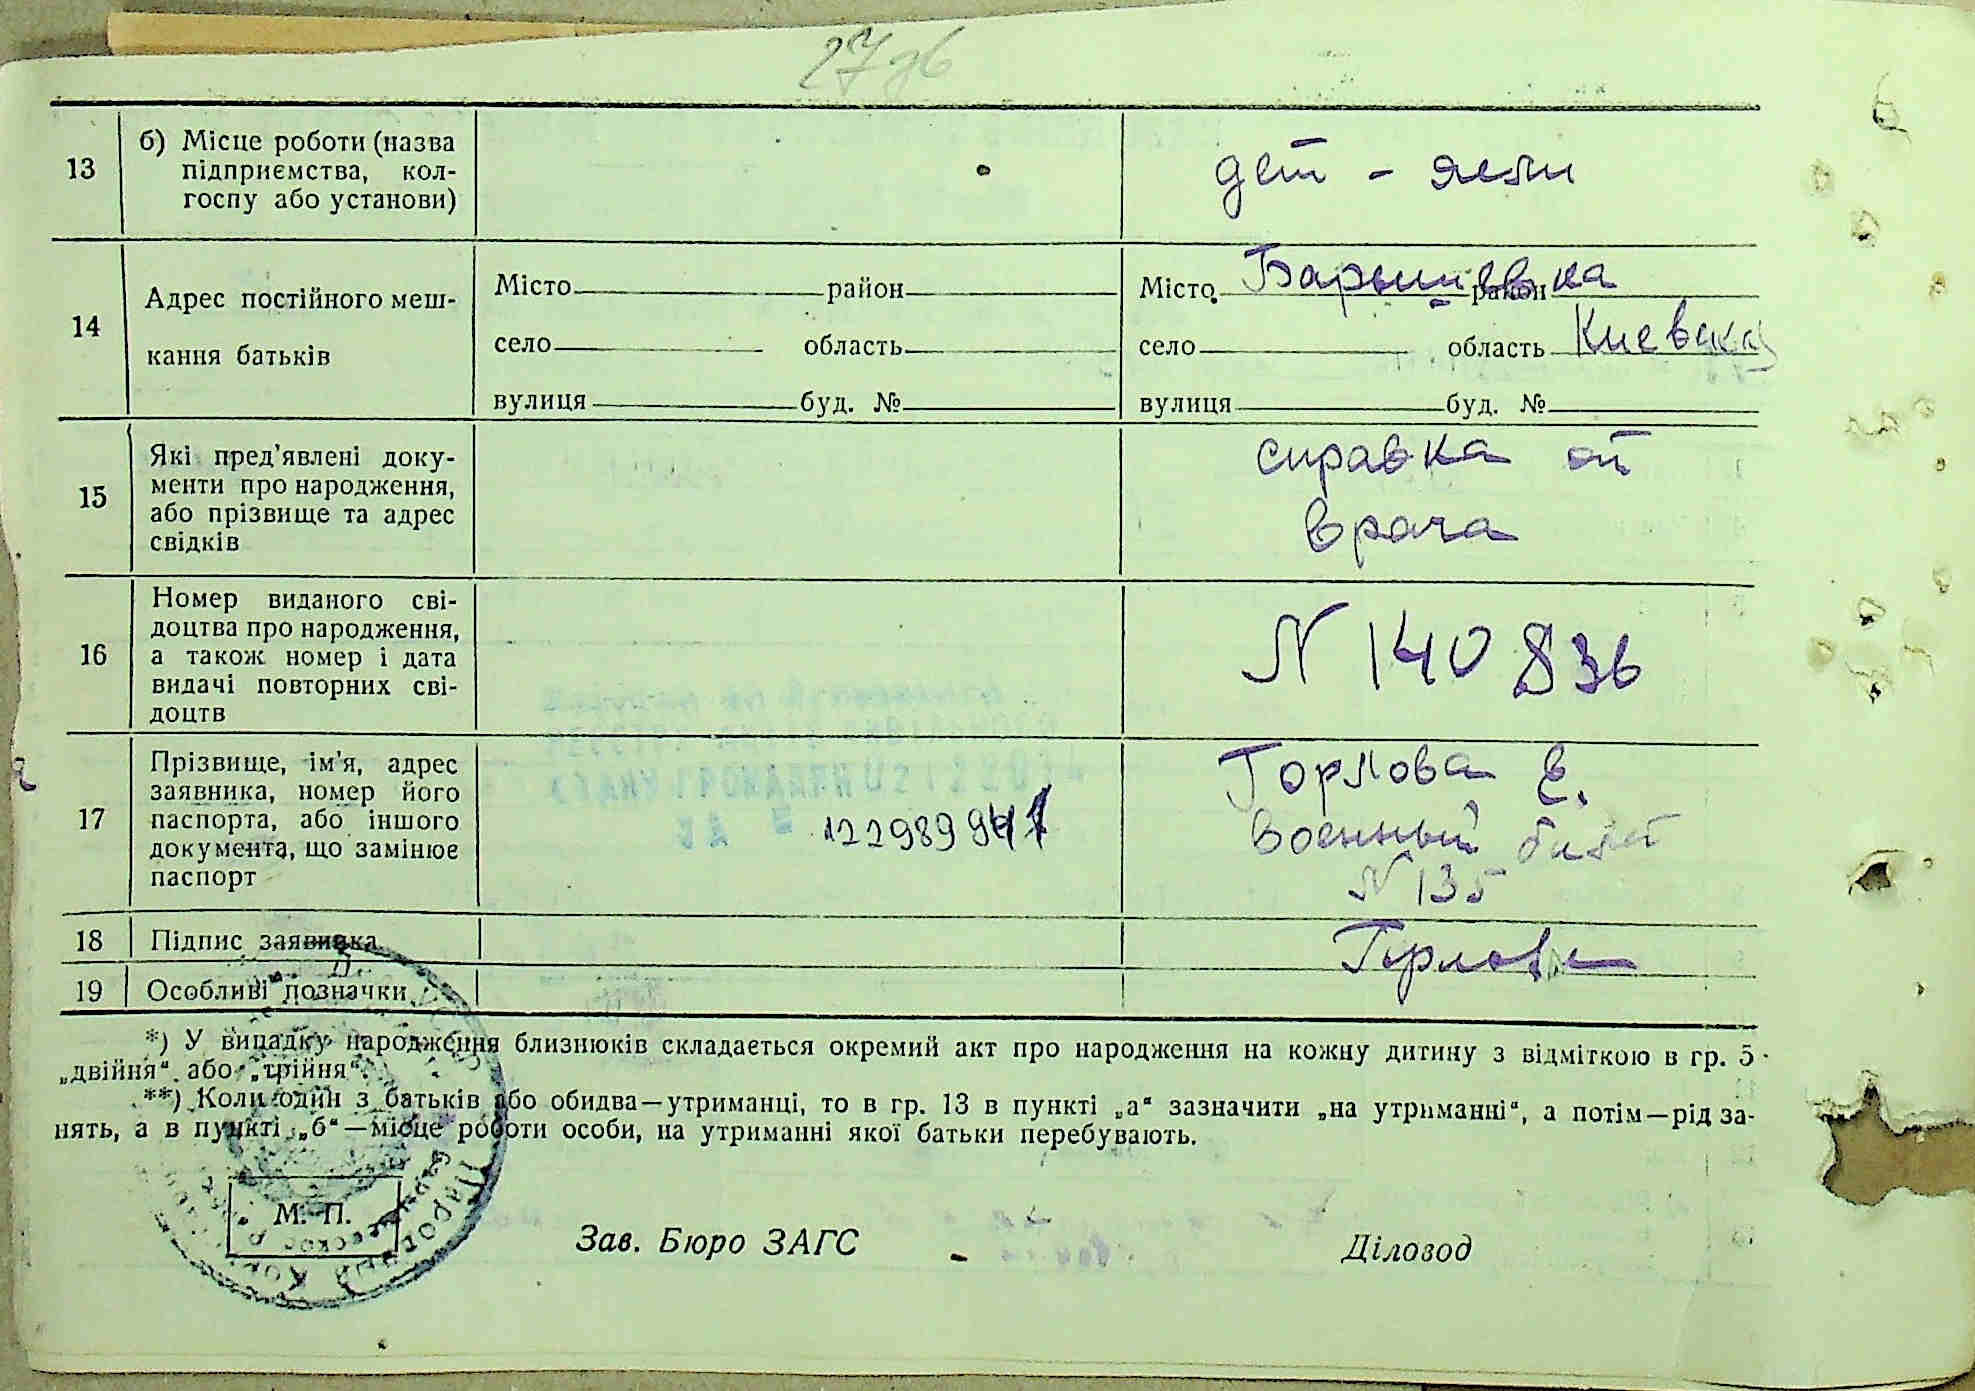 13
б) Місце роботи (назва
підприємства, кол-
госпу або установи)
дет - ясли
14
Адрес постійного меш-
кання батьків
Місто район
село область
вулиця буд. №
Місто Барышевка район
село область Киевская
вулиця буд. №
15
Які пред’явлені доку-
менти про народження,
або прізвище та адрес
свідків
справка от
врача
16
Номер виданого сві-
доцтва про народження,
а також номер і дата
видачі повторних сві-
доцтв
N 140836
17
Прізвище, ім’я, адрес
заявника, номер його
паспорта, або іншого
документа, що замінює
паспорт
СТАНУ ГРОМАДЯН
ЗА №
Горлова Е.
военный билет
N 135
18 Підпис заявника
Горлова
19 Особливі позначки
*) У випадку народження близнюків складається окремий акт про народження на кожну дитину з відміткою в гр. 5
„двійня“ або „трійня“.
**) Коли один з батьків або обидва—утриманці, то в гр. 13 в пункті „а“ зазначити „на утриманні“, а потім—рід за-
нять, а в пункті „б“—місце роботи особи, на утриманні якої батьки перебувають.
М. П.
Зав. Бюро ЗАГС
Діловод